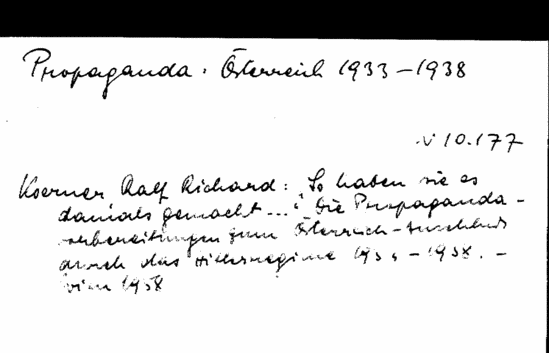 Propaganda. Österreich 1933–1938
V 10.177
Koerner Ralf Richard: So haben sie es
damals gemacht...: Die Propaganda-
vorbereitungen zum Österreich-Anschluss
durch das Hitlerregime 1933–1938. –
Wien 1958